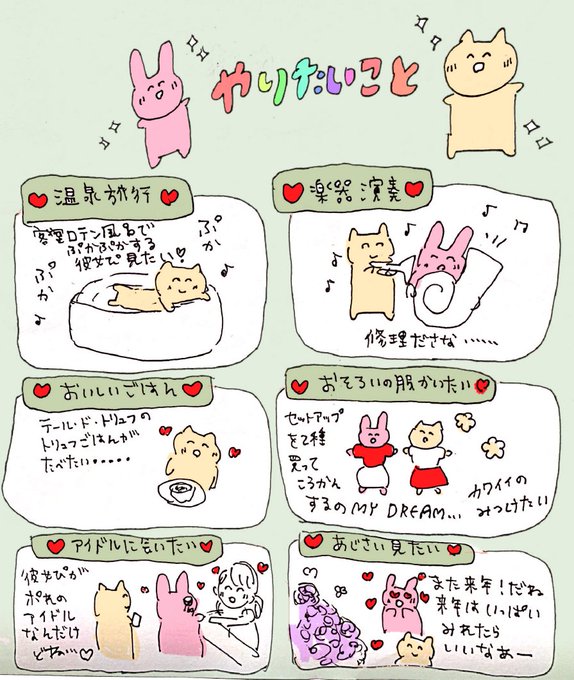 やりたいこと
温泉旅行
客室ロテン風呂で
ぷかぷかする
彼ぴ見たい♡
ぷか
ぷか
楽器演奏
修理ださな……
おいしいごはん
テール・ド・トリュフの
トリュフごはんが
たべたい・・・・・
おそろいの服かいたい
セットアップ
を2種
買って
ころかん
するの MY DREAM...
カワイイの
みつけたい
アイドルに会いたい
彼ぴが
ポれの
アイドル
なんだけ
どね…♡
あじさい見たい
また来年!だね
来年はいっぱい
みれたら
いいなあー